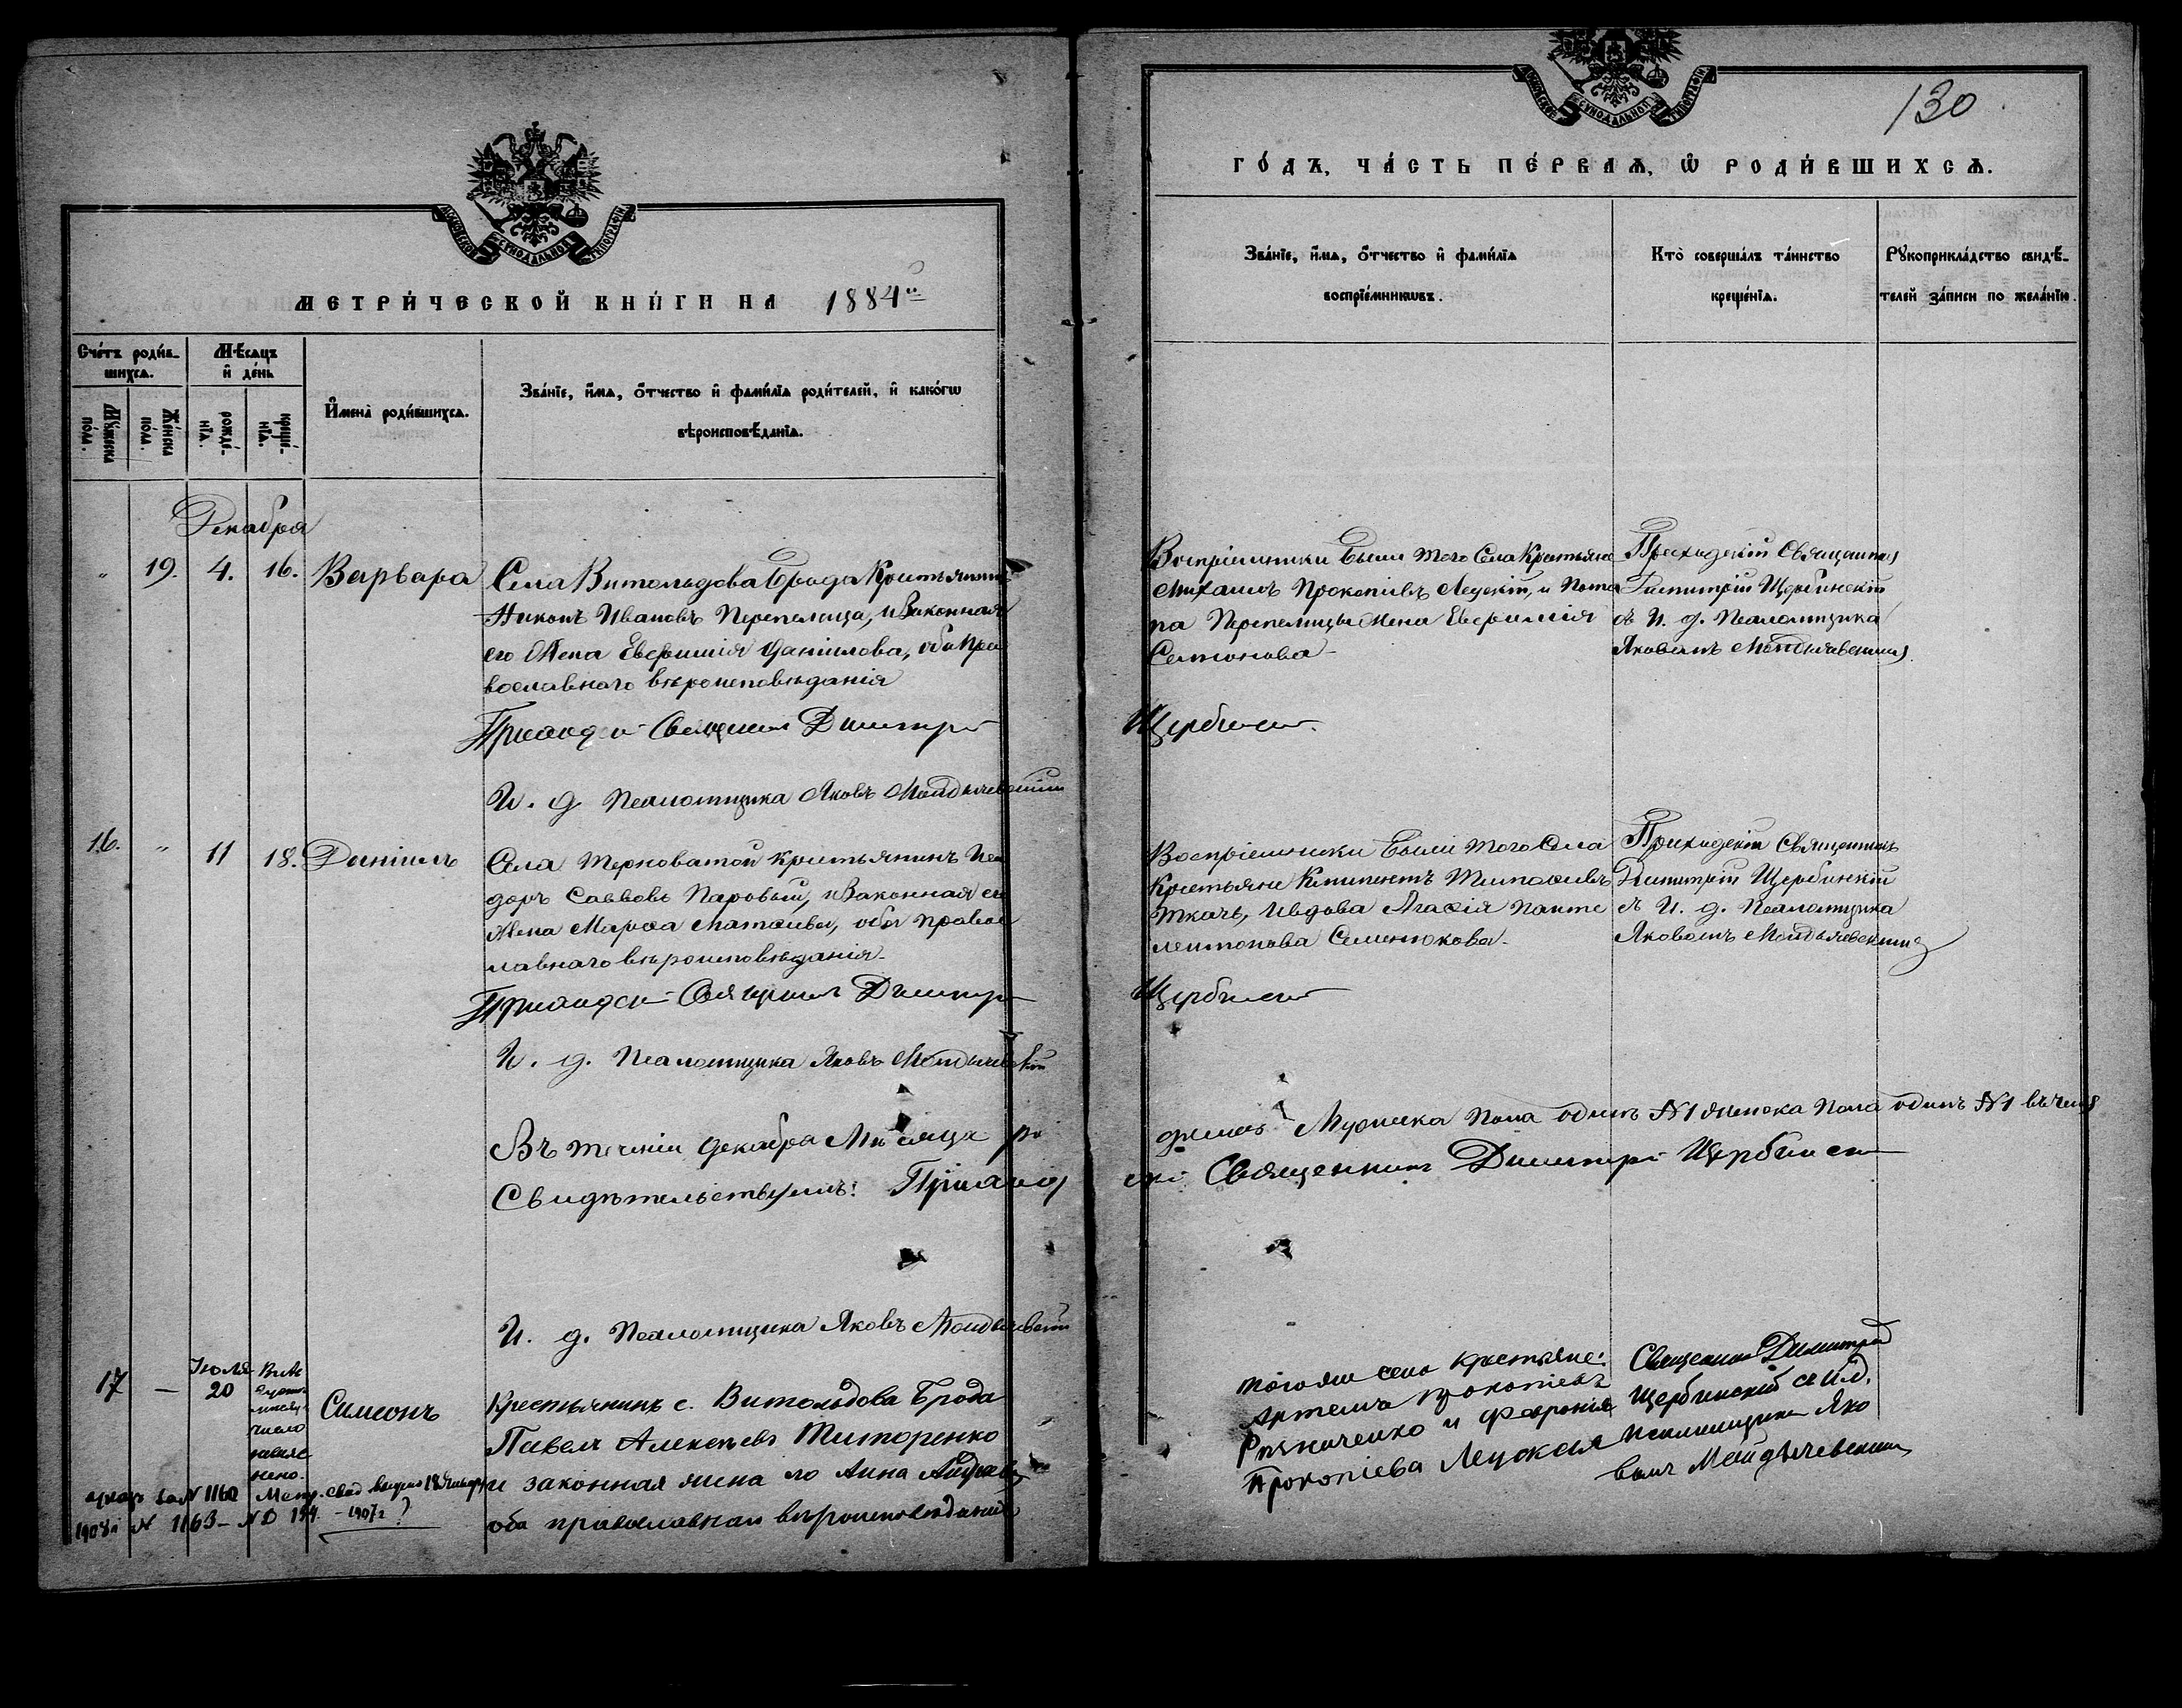 МОСКОВСКОЙ СѴНОДАЛЬНОЙ ТИПОГРАФІИ
МЕТРИ́ЧЕСКОЙ КНИ́ГИ НА 1884й
Сче́тъ роди́в-
шихсѧ.
Мѣ́сѧцъ
и҆ де́нь
Му́жеска
по́ла.
Же́нска
по́ла.
рожде́-
нїѧ.
креще́-
нїѧ.
И҆мена̀ роди́вшихсѧ.
Зва́нїе, и҆́мѧ, ѻ҆́тчество и҆ фами́лїа роди́телей, и҆ како́гѡ
вѣроисповѣ́данїѧ.
Декабря
" 19. 4. 16. Варвара
Села Витольдова Брода Крестьянинъ
Никонъ Ивановъ Перепелица, и Законная
его Жена Евфимія Данилова, оба Пра
вославнаго вѣроисповѣданія
Приходск. Священник Димитрі
И. д. Псаломщика Яковъ
16. " 11 18. Даніилъ
Села Терноватой крестьянинъ Иси
доръ Саввовъ Паровый, и Законная его
Жена Марѳа Матѳіева, оба правос
лавнаго вѣроисповѣданія.
Приходск. Священник Димитрі
И. д. Псаломщика Яковъ
Въ теченіи декабря Мѣсяца ро
Свидѣтельствуемъ: Приход
И. д. Псаломщика Яковъ
17 — Іюля 20
число
нено.
Симеонъ
Крестьянинъ с. Витольдова Брода
Павелъ Алексѣевъ Титоренко
и законная жена его Анна
оба православнаго вѣроисповѣданія
N 1160
N 1163 - N 194 - 1907 г?
МОСКОВСКОЙ СѴНОДАЛЬНОЙ ТИПОГРАФІИ
130
ГО́ДЪ, ЧА́СТЬ ПЕ́РВАѦ, Ѽ РОДИ́ВШИХСѦ.
Зва́нїе, и҆́мѧ, ѻ҆́тчество и҆ фами́лїа
воспрїе́мникѡвъ.
Кто̀ соверша́лъ та́инство
креще́нїѧ.
Рꙋкоприкла́дство свидѣ́-
телей за́писи по жела́нїю.
Воспріемники Были того Села Крестьяне
Михаилъ Прокопіевъ Леускій, и Пота
па Перепелицы Жена Евфимія
Семенова
Приходскій Священникъ
Димитрій Щербинскій
съ И. д. Псаломщика
Яковомъ
Щербинск
Воспріемники Были того Села
Крестьяне Климентъ Тимоѳіевъ
Ткачъ, и вдова Агафія Панте
леймонова Семенюкова.
Приходскій Священникъ
Димитрій Щербинскій
съ И. д. Псаломщика
Яковомъ
Щербинск
дилось Мужеска Пола одинъ N 1 женска Пола одинъ N 1
скі Священникъ Димитрі Щербинск
того же села крестьяне:
Артемъ Прокопіевъ
и Февронія
Прокопіева Леуская
Священник Димитрій
Щербинскій съ И.д.
псаломщика Яко
вомъ